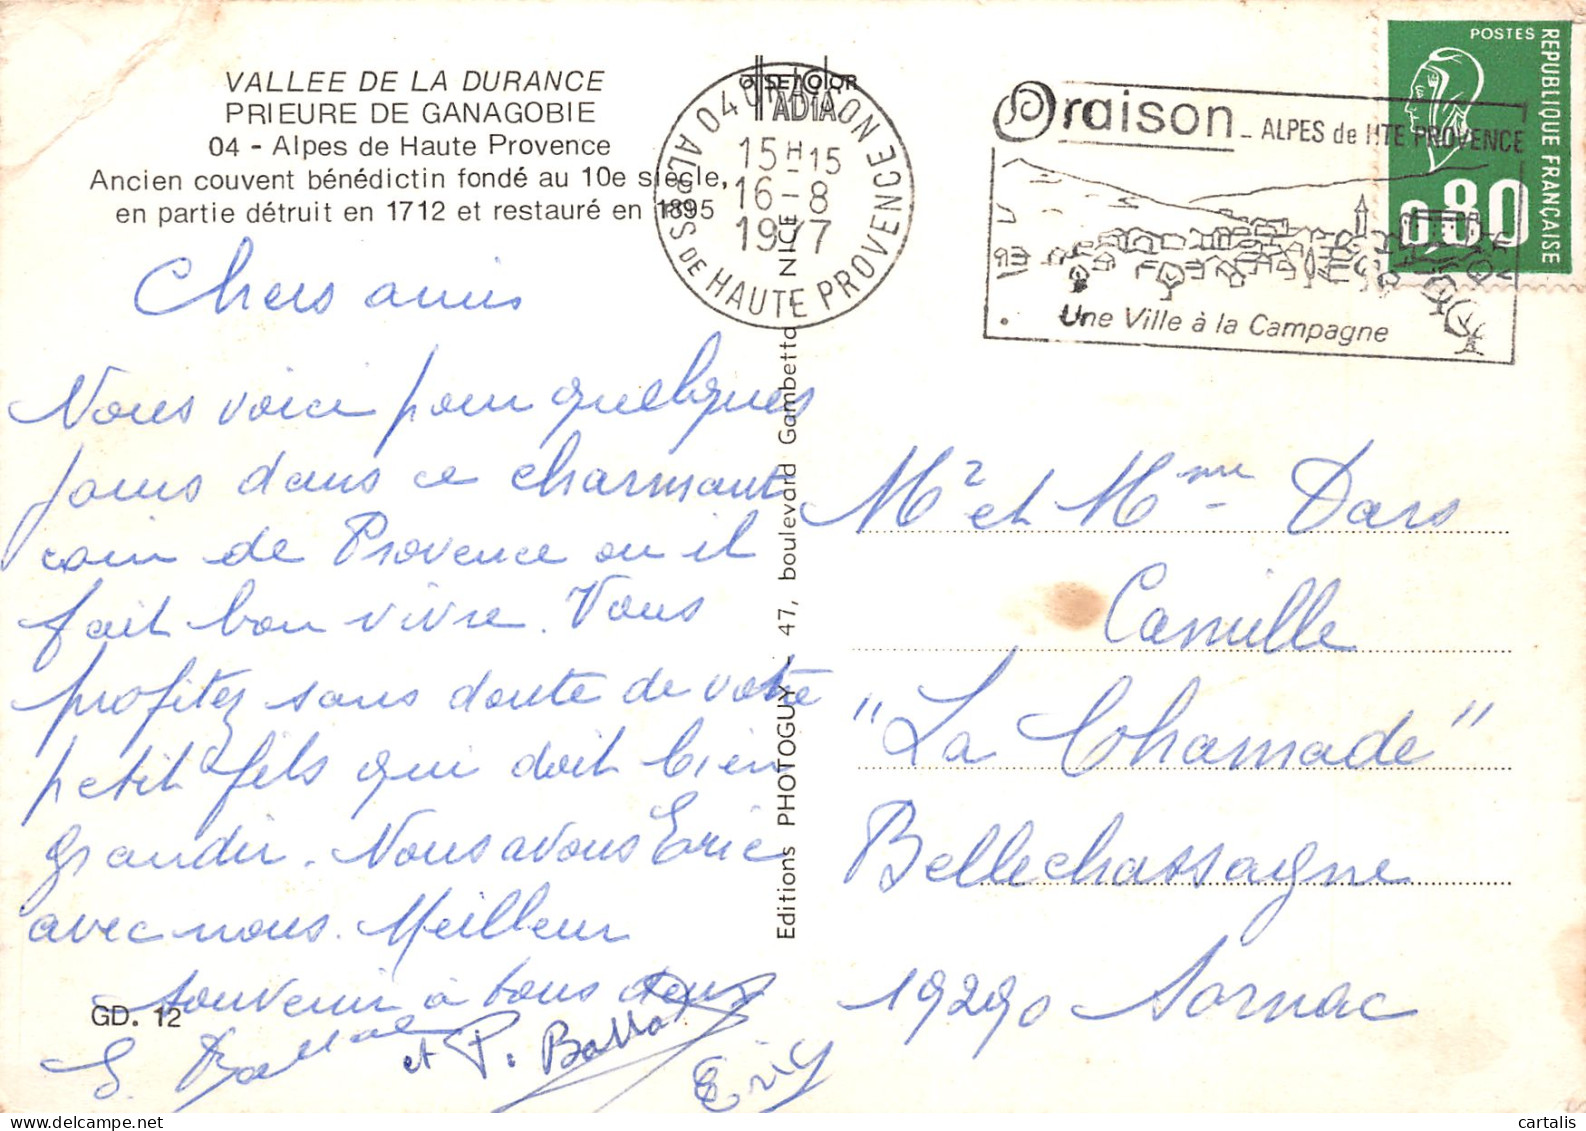 VALLEE DE LA DURANCE
PRIEURE DE GANAGOBIE
04 - Alpes de Haute Provence
Ancien couvent bénédictin fondé au 10e siècle,
en partie détruit en 1712 et restauré en 1895
Chers amis
Nous voici pour quelques
jours dans ce charmant
coin de Provence ou il
fait bon vivre. Vous
profitez sans doute de votre
petit fils qui doit bien
grandir. Nous avons Eric
avec nous. Meilleur
souvenir à tous deux
et P.
Eric
GD. 12
Editions PHOTOGUY - 47, boulevard Gambetta NICE
OFFSETCOLOR
ADIA
04 ORAISON
15H15
16-8
1977
ALPES DE HAUTE PROVENCE
Oraison - ALPES de HTE PROVENCE
Une Ville à la Campagne
POSTES
REPUBLIQUE FRANÇAISE
0,80
Mr et Mme Dars
Camille
"La Chamade"
Bellechassagne
19290 Sornac
cartalis